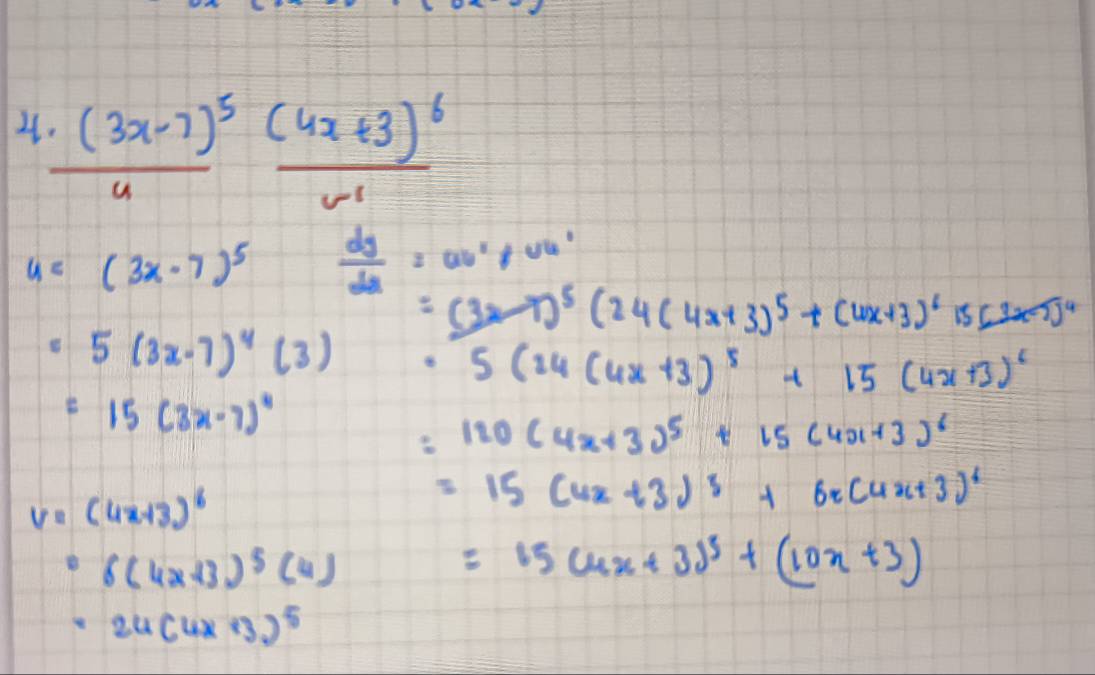 4. (3x-7)⁵ (4x+3)⁶
u
v
u = (3x-7)⁵
= 5 (3x-7)⁴ (3)
= 15 (3x-7)⁴
v = (4x+3)⁶
= 6(4x+3)⁵ (4)
= 24(4x+3)⁵
dy/dx = uv' + vu'
= (3x-7)⁵ (24(4x+3)⁵ + (4x+3)⁶ 15(3x-7)⁴
= 5 (24 (4x+3)⁵ + 15 (4x+3)⁶
= 120(4x+3)⁵ + 15 (4x+3)⁶
= 15 (4x+3)⁵ + (4x+3)⁶
= 15 (4x+3)⁵ + (10x+3)